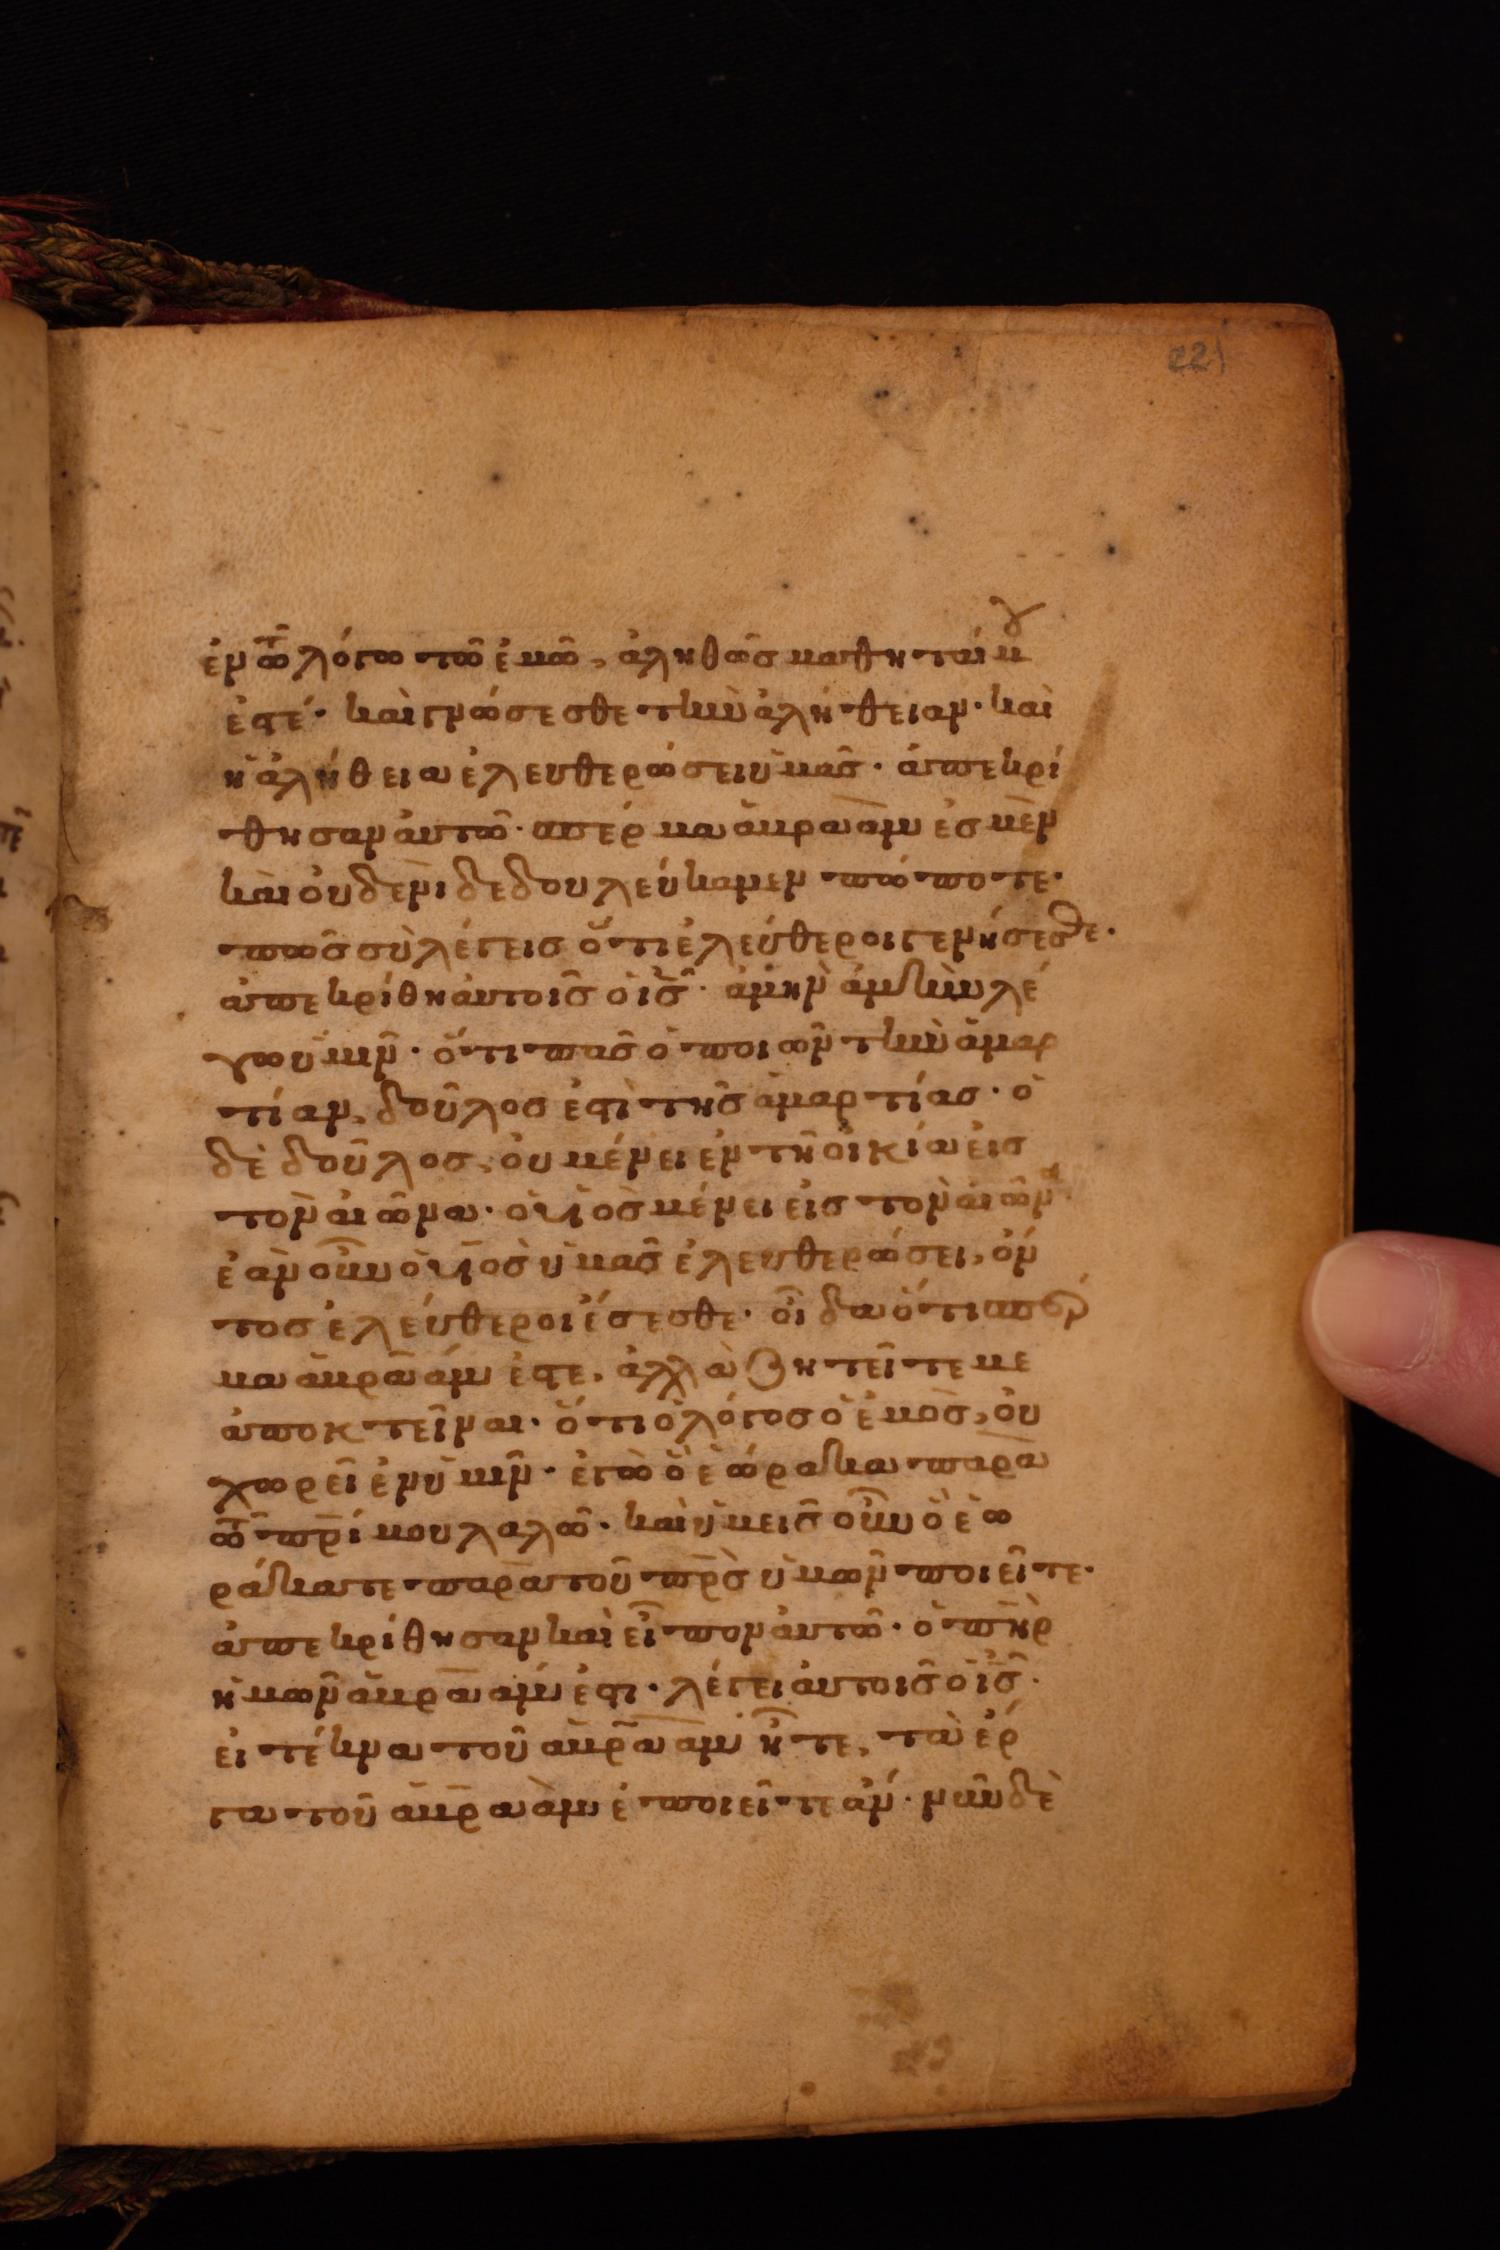 221
ἐν τῶ λόγω τῶ ἐμῶ, ἀληθῶς μαθηταί μου
ἐστέ· καὶ γνώσεσθε τὴν ἀλήθειαν· καὶ
ἡ ἀλήθεια ἐλευθερώσει ὑμᾶς· ἀπεκρί
θησαν αὐτῶ· σπέρμα ἀβρααμ ἐσμὲν
καὶ οὐδενὶ δεδουλεύκαμεν πώποτε·
πῶς σὺ λέγεις ὅτι ἐλεύθεροι γενήσεσθε·
ἀπεκρίθη αὐτοῖς ὁ ις· ἀμὴν ἀμὴν λέ
γω ὑμῖν· ὅτι πᾶς ὁ ποιῶν τὴν ἁμαρ
τίαν, δοῦλος ἐστὶ τῆς ἁμαρτίας· ὁ
δὲ δοῦλος, οὐ μένει ἐν τῆ οἰκία εἰς
τὸν αἰῶνα· ὁ υἱὸς μένει εἰς τὸν αἰῶνα
ἐὰν οὖν ὁ υἱὸς ὑμᾶς ἐλευθερώσει, ὄν
τος ἐλεύθεροι ἔσεσθε· οἶδα ὅτι σπέρ
μα ἀβραάμ ἐστε, ἀλλὰ ζητεῖτε με
ἀποκτεῖναι· ὅτι ὁ λόγος ὁ ἐμὸς, οὐ
χωρεῖ ἐν ὑμῖν· ἐγὼ ὃ ἑώρακα παρὰ
τῶ πρί μου λαλῶ· καὶ ὑμεῖς οὖν ὃ ἑω
ράκατε παρὰ τοῦ πρς ὑμῶν ποιεῖτε·
ἀπεκρίθησαν καὶ εἶπον αὐτῶ· ὁ πηρ
ἡμῶν ἀβρααμ ἐστι· λέγει αὐτοῖς ὁ ις·
εἰ τέκνα τοῦ ἀβραὰμ ἦτε, τὰ ἔρ
γα τοῦ ἀβραὰμ ἐποιεῖτε ἄν· νῦν δὲ